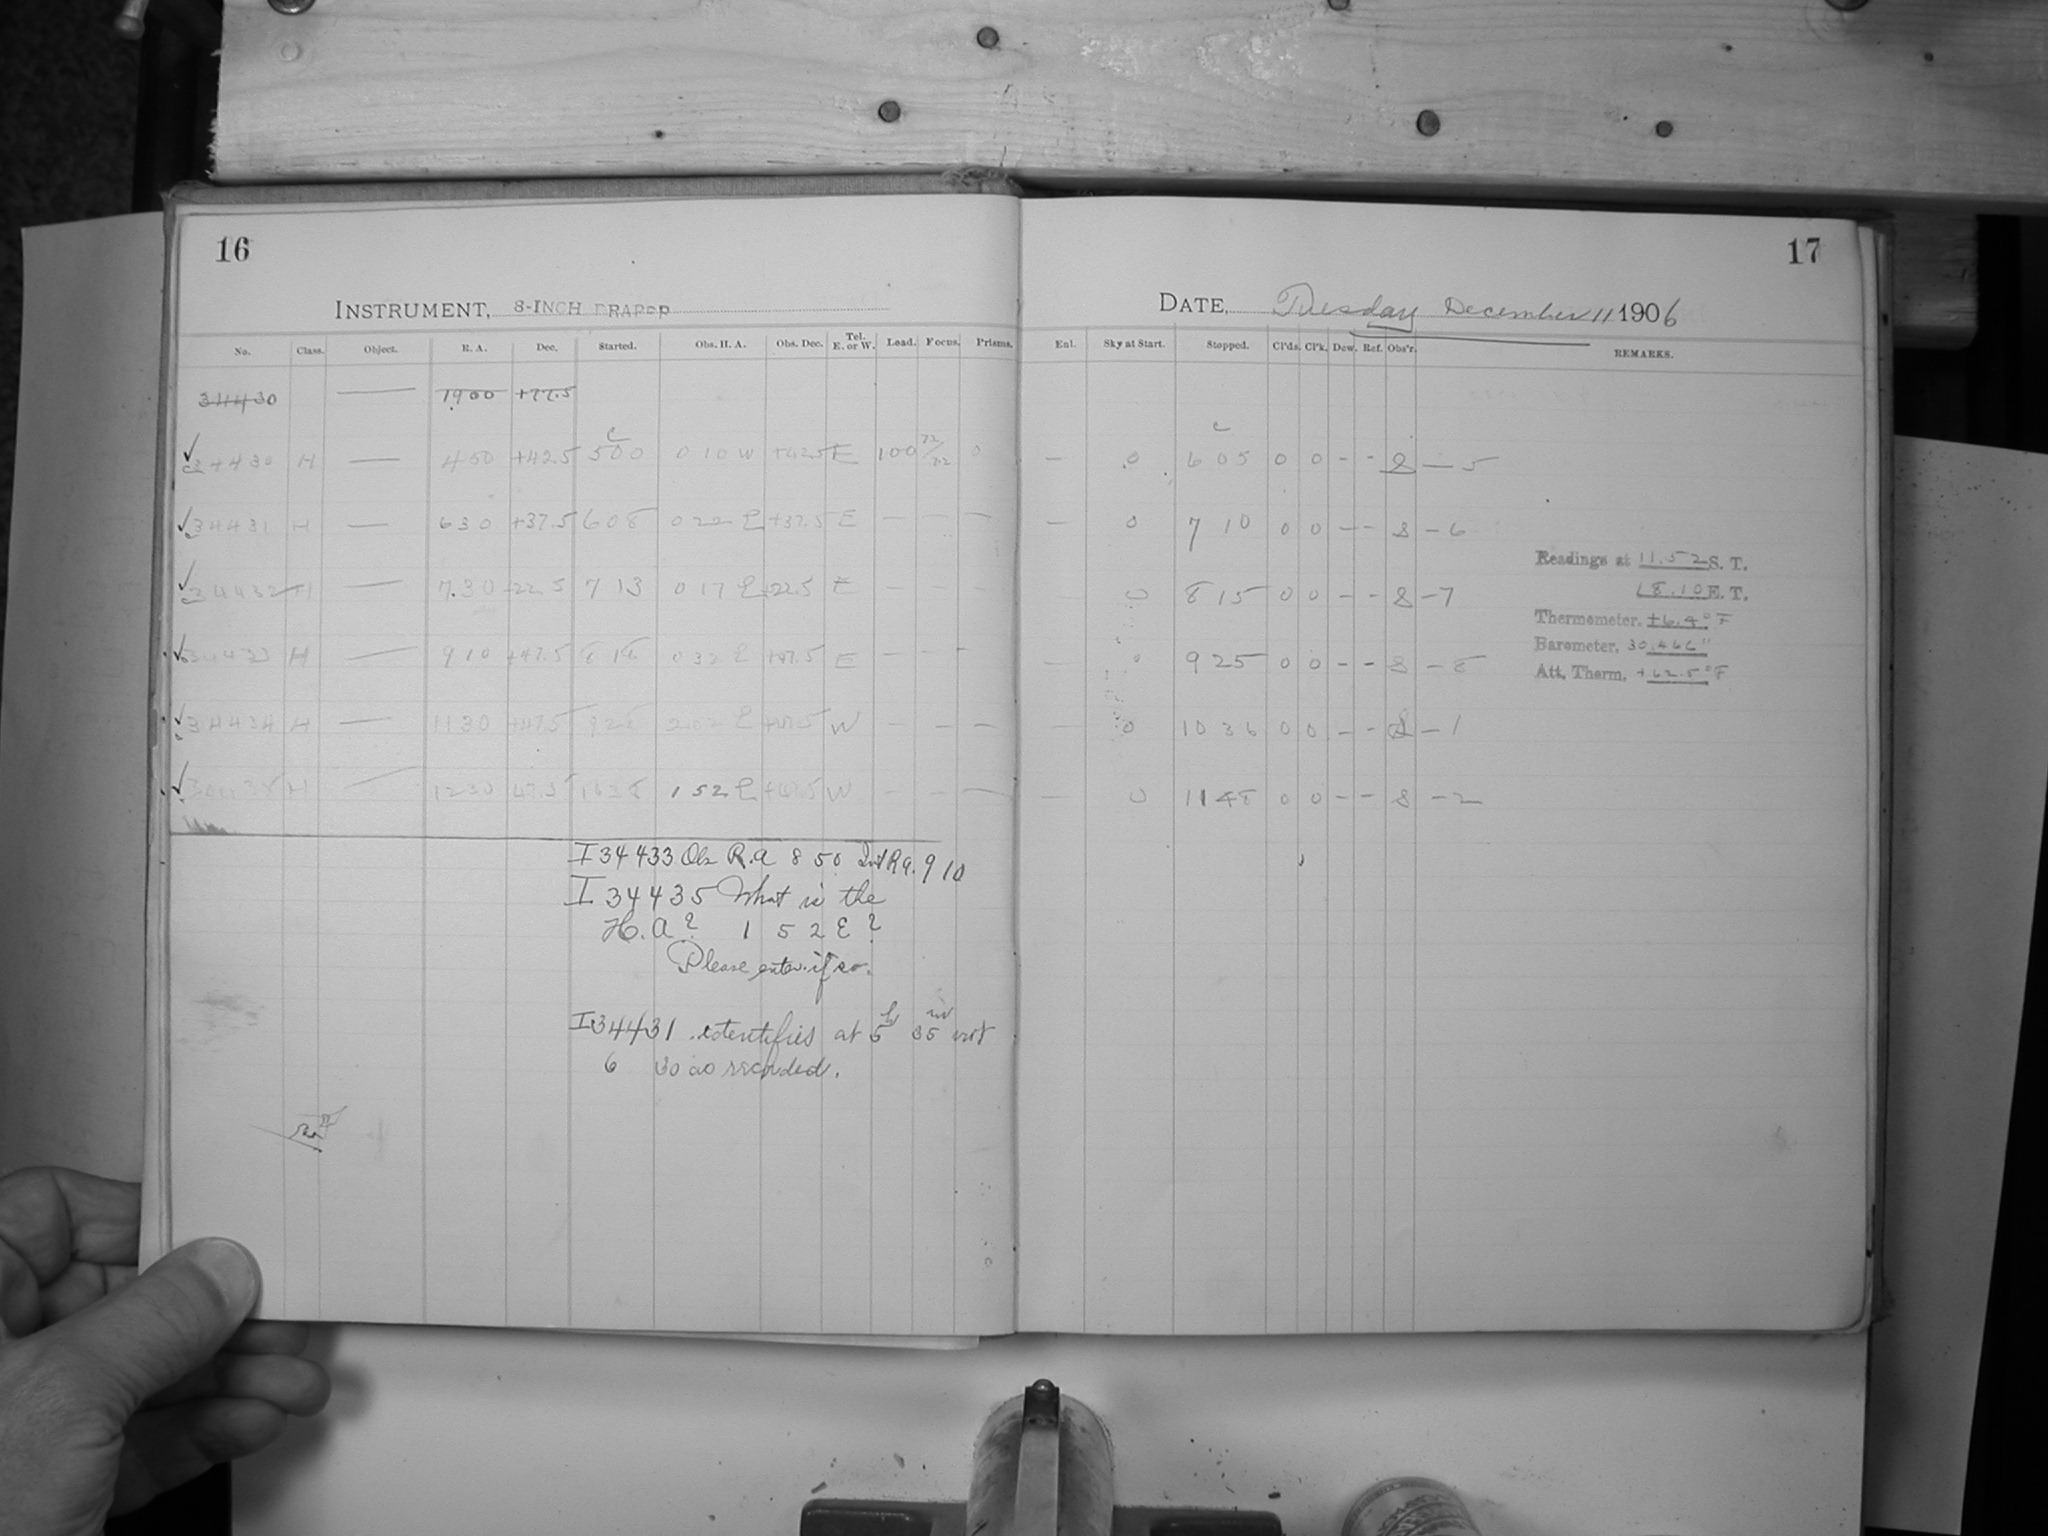 16
INSTRUMENT, 8-INCH DRAPER
No. Class. Object. R. A. Dec. Started. Obs. H. A. Obs. Dec. Tel. E. or W. Load. Focus. Prisms.
34430 — 1900 +77.5
34430 H — 450 +42.5 500 0 10 W +42.5 E 100 72/72 0
34431 H — 630 +37.5 608 0 22 E +37.5 E — — —
34432 H — 7.30 +22.5 7 13 0 17 E +22.5 E — — —
34433 H — 910 +47.5 818 0 32 E +47.5 E — — -
34434 H — 1130 +47.5 928 2 02 E +47.5 W — — —
34435 H — 1230 47.5 1038 1 52 E +47.5 W — — —
I 34433 Obs R.A 8 50 Int R.A. 9 10
I 34435 What is the
H.A? 1 5 2 E ?
Please enter if so.
I 34431 identifies at 5h 35m not
6 30 as recorded.
17
DATE, Tuesday December 11 1906
Enl. Sky at Start. Stopped. Cl'ds. Cl'k. Dew. Ref. Obs'r. REMARKS.
— 0 605 0 0 - - S — 5
— 0 7 10 0 0 — - S - 6
0 815 0 0 - - S - 7
— 0 925 0 0 - - S - 8
— 0 10 36 0 0 — - S — 1
— 0 1148 0 0 - - S - 2
Readings at 11.52 S. T.
18.10 E. T.
Thermometer. +6.4°F
Barometer. 30.466"
Att. Therm. +62.5°F